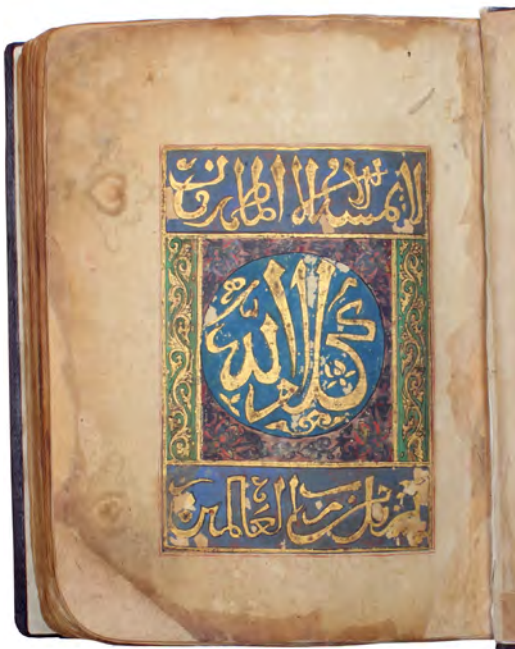 لا يمسه إلا المطهرون
كلام الله
تنزيل من رب العالمين